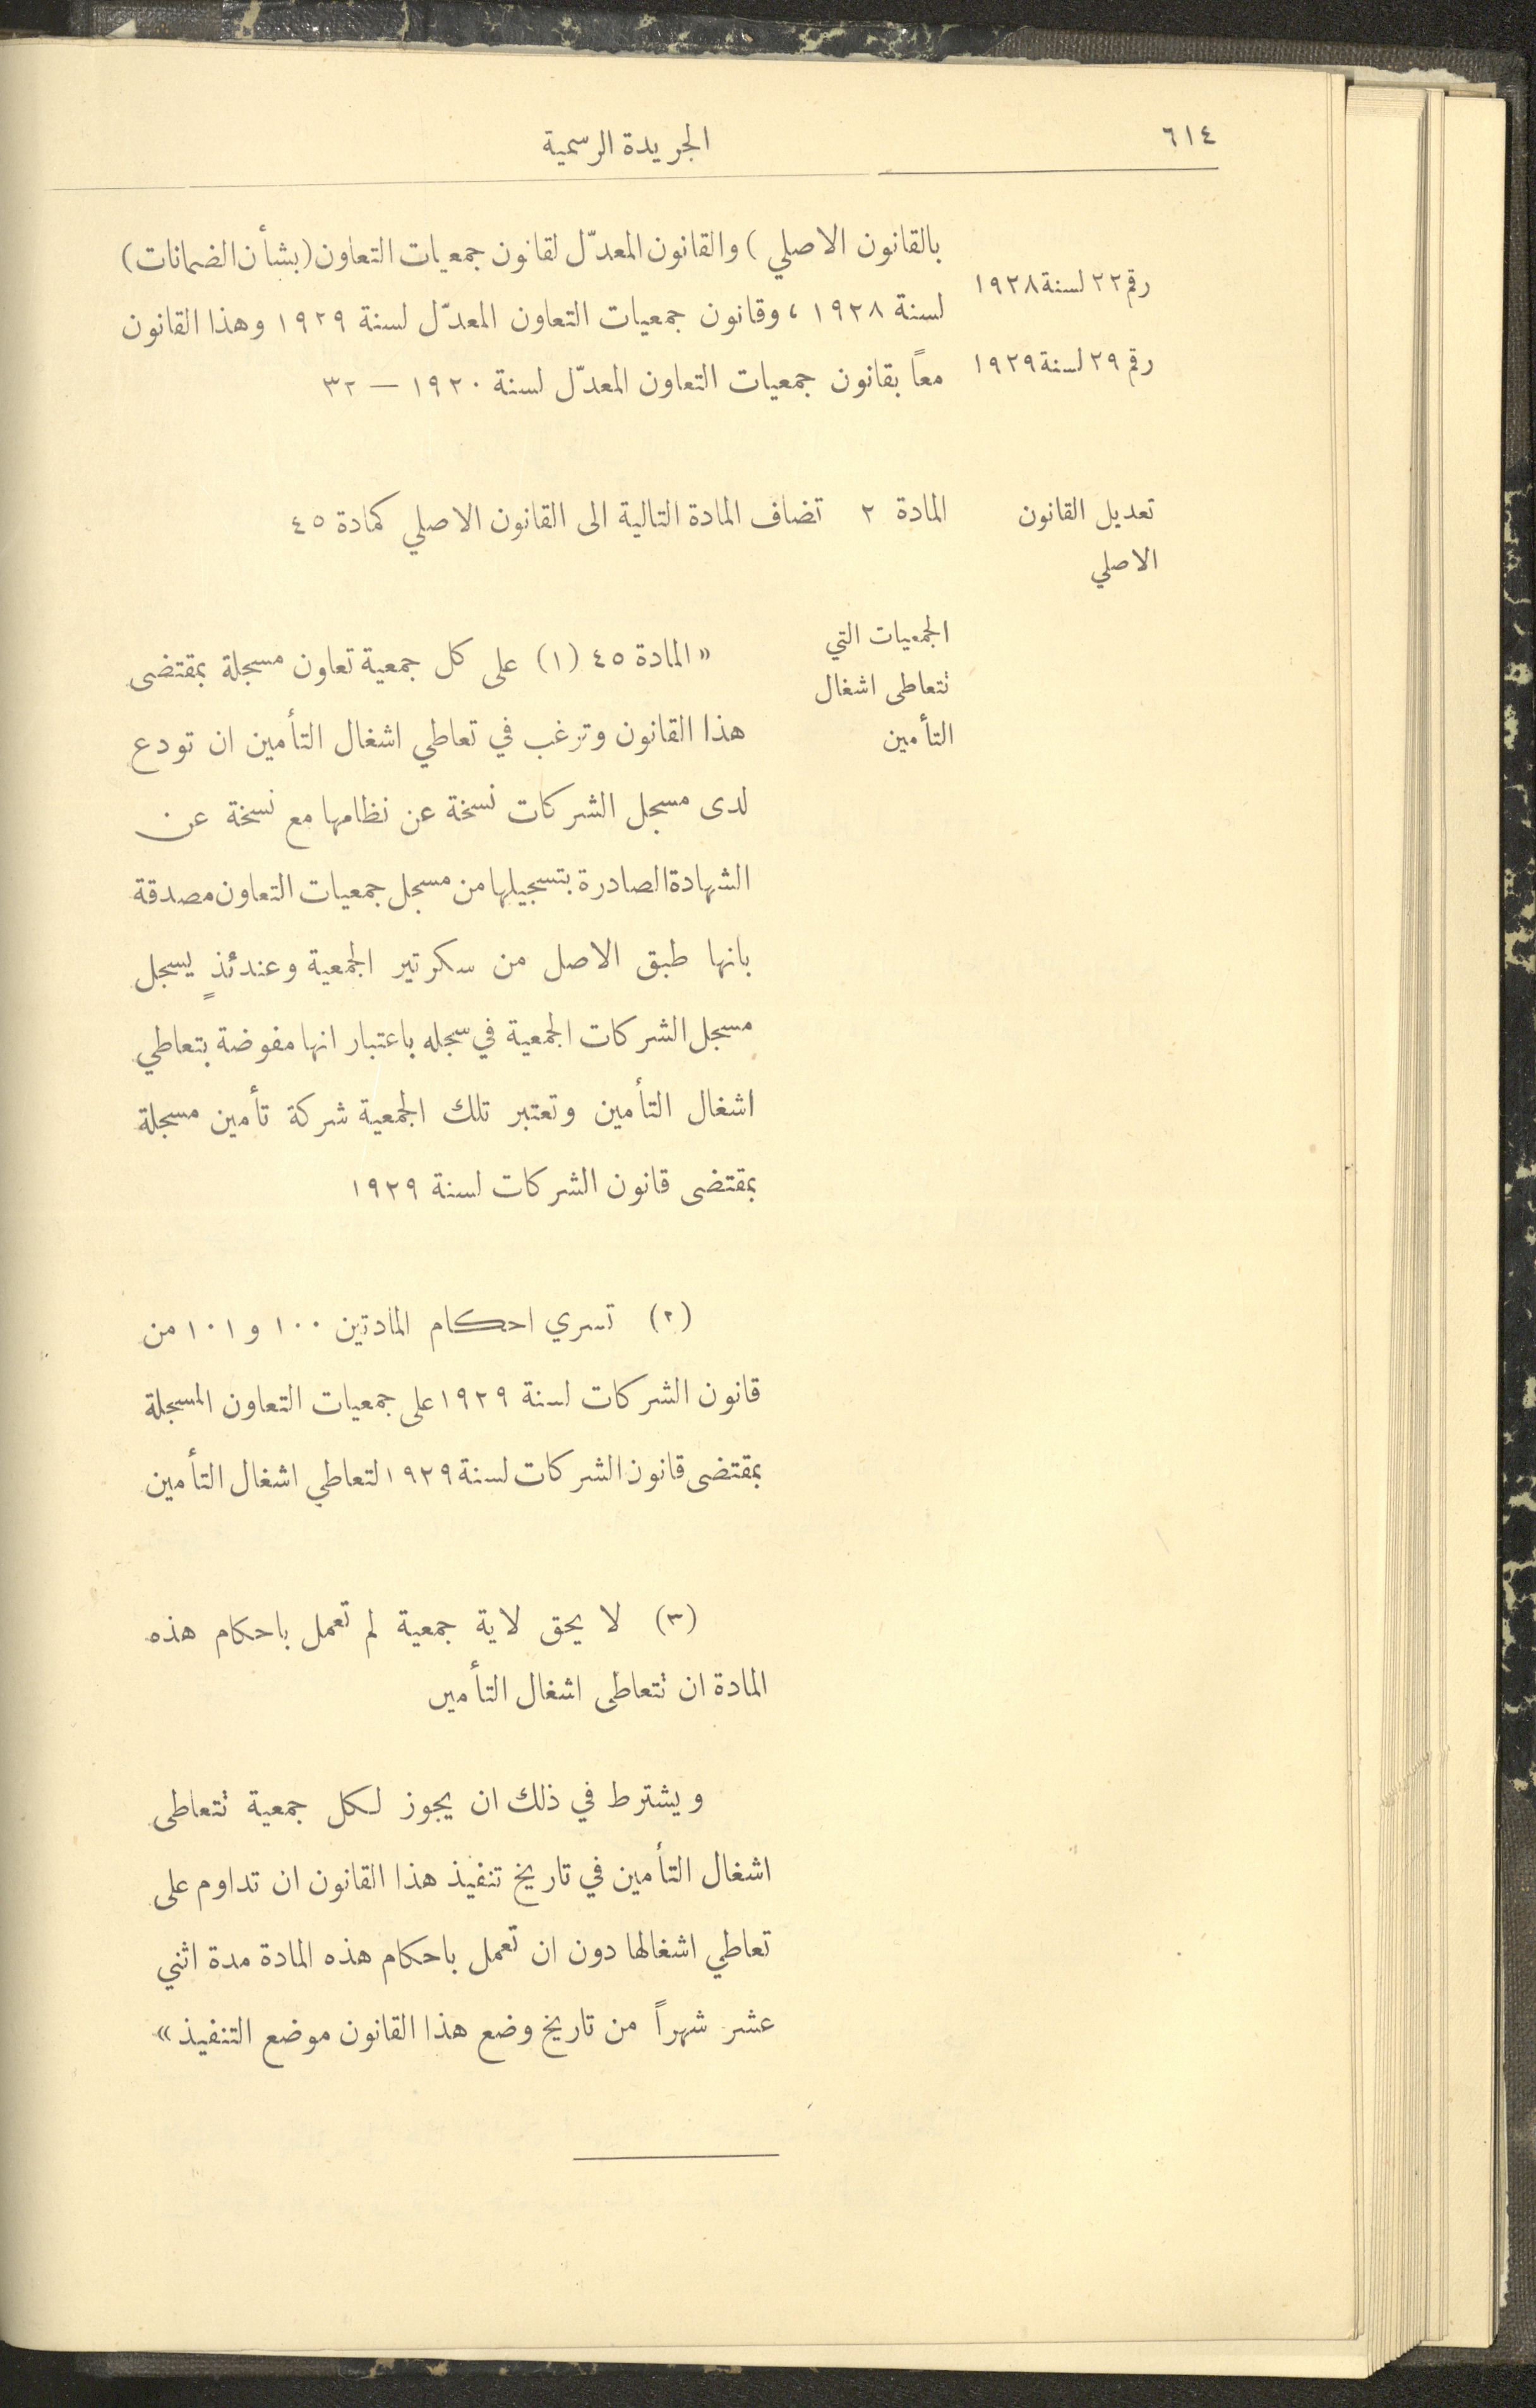 ٦١٤
الجريدة الرسمية
بالقانون الاصلي ) والقانون المعدّل لقانون جمعيات التعاون (بشأن الضمانات)
رقم ٢٢ لسنة ١٩٢٨
لسنة ١٩٢٨ ، وقانون جمعيات التعاون المعدّل لسنة ١٩٢٩ وهذا القانون
رقم ٢٩ لسنة ١٩٢٩
معاً بقانون جمعيات التعاون المعدّل لسنة ١٩٢٠ — ٣٢
تعديل القانون
الاصلي
المادة ٢ تضاف المادة التالية الى القانون الاصلي كمادة ٤٥
الجمعيات التي
تتعاطى اشغال
التأمين
« المادة ٤٥ (١) على كل جمعية تعاون مسجلة بمقتضى
هذا القانون وترغب في تعاطي اشغال التأمين ان تودع
لدى مسجل الشركات نسخة عن نظامها مع نسخة عن
الشهادة الصادرة بتسجيلها من مسجل جمعيات التعاون مصدقة
بانها طبق الاصل من سكرتير الجمعية وعندئذٍ يسجل
مسجل الشركات الجمعية في سجله باعتبار انها مفوضة بتعاطي
اشغال التأمين وتعتبر تلك الجمعية شركة تأمين مسجلة
بمقتضى قانون الشركات لسنة ١٩٢٩
(٢) تسري احكام المادتين ١٠٠ و ١٠١ من
قانون الشركات لسنة ١٩٢٩ على جمعيات التعاون المسجلة
بمقتضى قانون الشركات لسنة ١٩٢٩ لتعاطي اشغال التأمين
(٣) لا يحق لاية جمعية لم تعمل باحكام هذه
المادة ان تتعاطى اشغال التأمين
ويشترط في ذلك ان يجوز لكل جمعية تتعاطى
اشغال التأمين في تاريخ تنفيذ هذا القانون ان تداوم على
تعاطي اشغالها دون ان تعمل باحكام هذه المادة مدة اثني
عشر شهراً من تاريخ وضع هذا القانون موضع التنفيذ »